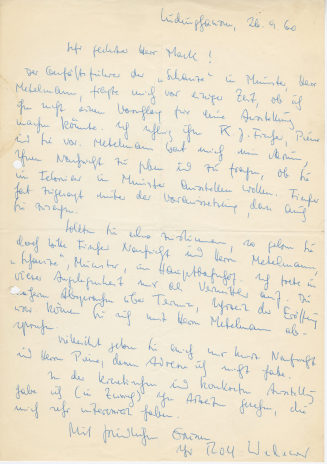 Lüdinghausen, 26. 9. 60
Sehr geehrter Herr Mack!
Der Geschäftsführer der „Schanze" in Münster, Herr
Metelmann, fragte mich vor einiger Zeit, ob ich
ihm nicht einen Vorschlag für eine Ausstellung
machen könnte. Ich schlug ihm K. J. Fischer, Piene
und Sie vor. Metelmann bat mich nun darum,
Ihnen Nachricht zu geben und zu fragen, ob Sie
im Februar in Münster ausstellen wollen. Fischer
hat zugesagt unter der Voraussetzung, dass auch
Sie zusagen.
Sollten Sie also zustimmen, so geben Sie
doch bitte Fischer Nachricht und Herrn Metelmann,
„Schanze", Münster, am Hauptbahnhof. Ich trete in
dieser Angelegenheit nur als Vermittler auf. Die
näheren Absprachen über Termin, Uhrzeit der Eröffnung
usw. können Sie mit Herrn Metelmann ab-
sprechen.
Vielleicht geben Sie auch nur kurz Nachricht
und Herrn Piene, dessen Adresse ich nicht habe.
In der konkreten Ausstellung
habe ich (in Zürich) Ihre Arbeiten gesehen, die
mich sehr interessiert haben.
Mit freundlichen Grüssen
Ihr Rolf